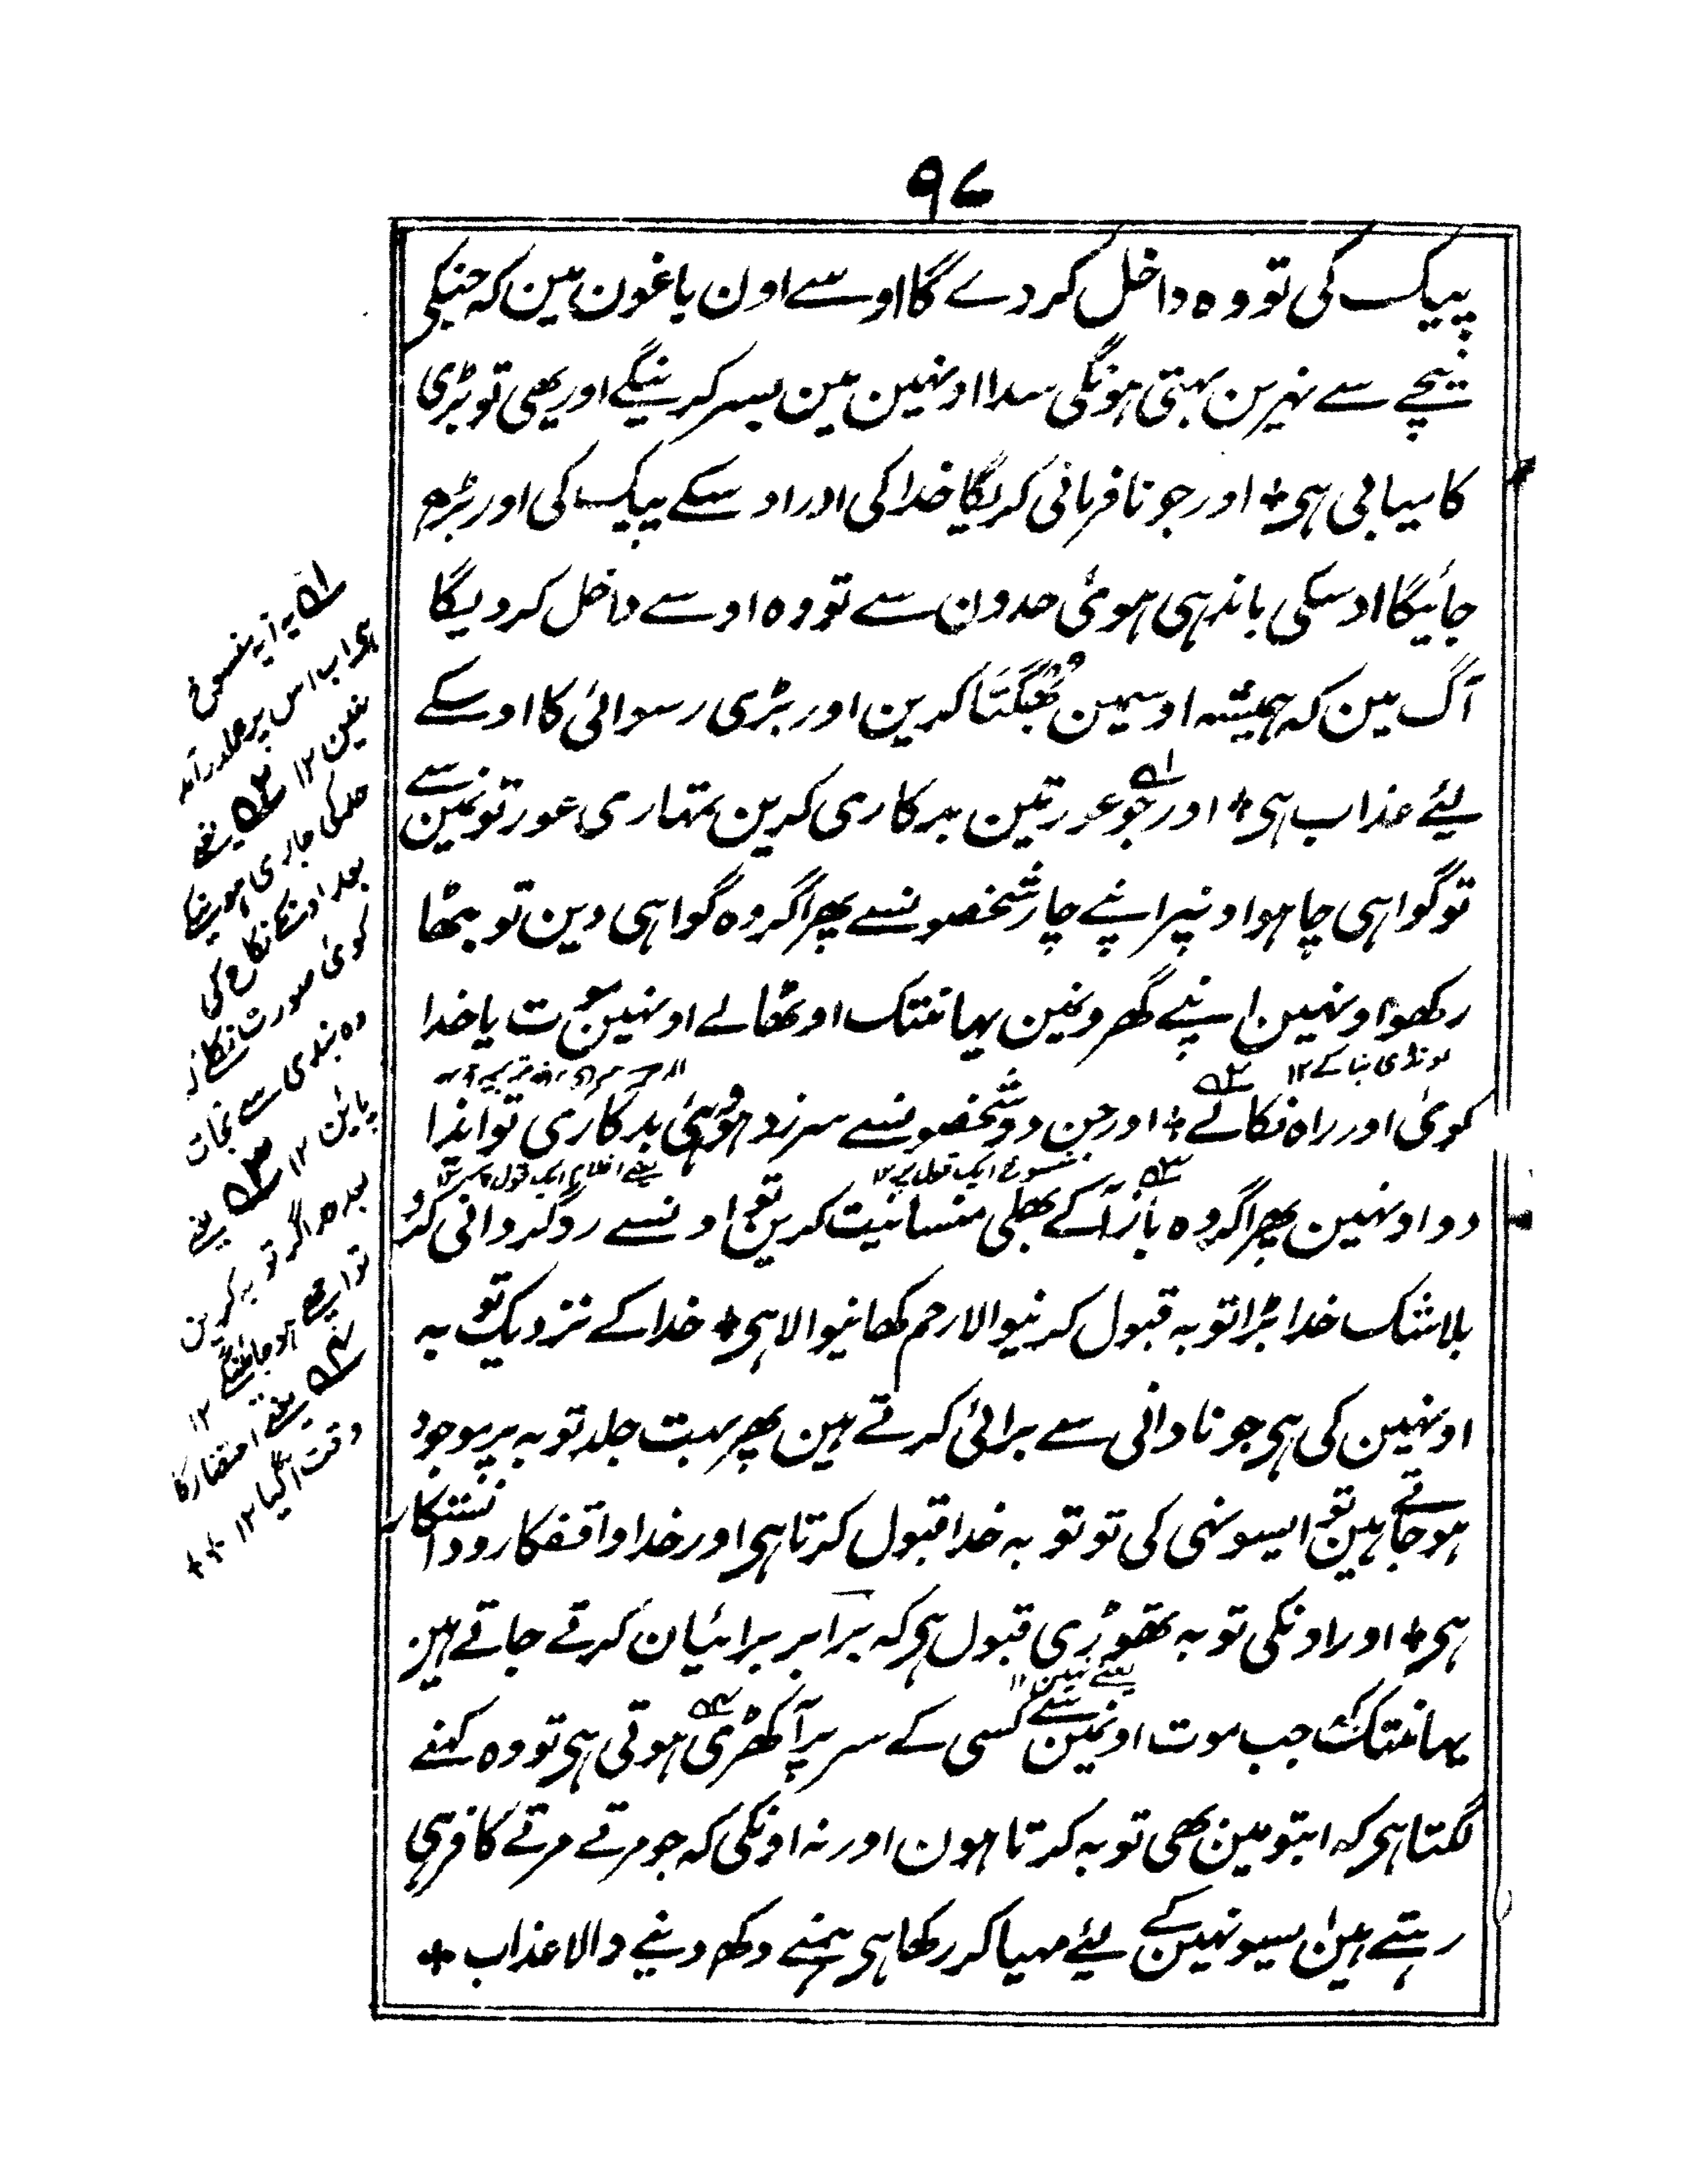 ۹۷
پیک کی تو وہ داخل کر دے گا اوسے اون باغون مین کہ جنکی
نیچے سے نہرین بہتی ہونگی سدا اونہین مین بسر کرینگے اور یہی تو بڑی
کامیابی ہی + اور جو نافرمانی کریگا خدا کی اور اوسکے پیک کی اور بڑھ
جائیگا اوسکی باندہی ہوئی حدون سے تو وہ اوسے داخل کر دیگا
آگ مین کہ ہمیشہ اوسیمین بھگتا کرین اور بڑی رسوائی کا اوسکے
لئے عذاب ہی + اور جو عورتین بدکاری کرین تمہاری عورتونمین سے
تو گواہی چاہو اونپر اپنے چار شخصونسے پھر اگر وہ گواہی دین تو بٹھا
رکھو اونہین اپنے گھرونمین یہانتک اوٹھالے اونہین موت یا خدا
لونڈی بنا کے ۱۲
کوئی اور راہ نکالے + اور جن دو شخصونسے سرزد ہو یہی بدکاری تو ایذا
منسوخ ایک قول پر ۱۲
دو اونہین پھر اگر وہ باز آ کے بھلی منسانیت کرین تو اونسے روگردانی کرو
بلاشک خدا بڑا توبہ قبول کرنیوالا رحم کھانیوالا ہی + خدا کے نزدیک تو توبہ
اونہین کی ہی جو نادانی سے برائی کرتے ہین پھر بہت جلد توبہ پر موجود
ہو جاتے ہین تو ایسونہی کی تو توبہ خدا قبول کرتا ہی اور خدا واقفکار و دانشتکار
ہی + اور اونکی توبہ تھوڑی قبول ہی کہ برابر برائیان کرتے جاتے ہین
یعنے نہین ۱۱
یہانتک کہ جب موت اونمین سے کسی کے سر پر آ کھڑی ہوتی ہی تو وہ کہنے
لگتا ہی کہ ابتو مین بھی توبہ کرتا ہون اور نہ اونکی کہ جو مرتے مرتے کافر ہی
رہتے ہین ایسونہین کے لئے مہیا کر رکھا ہی ہمنے دکھ دینے والا عذاب +
۵۱ یہ آیہ منسوخ
ہی اب اس پر عملدرآمد
نہین ۱۲ ۵۲ یعنے
حد کی جاری ہونیکے
بعد اونکے نکاح کی
کوئی صورت نکلے کہ
وہ بندی سے نجات
پائین ۱۲ ۵۳ یعنے
بعد حد اگر توبہ کرین
تو اچھے ہو جائینگے ۱۲
۵۴ یعنے احتضار کا
وقت آگیا ۱۲ ++